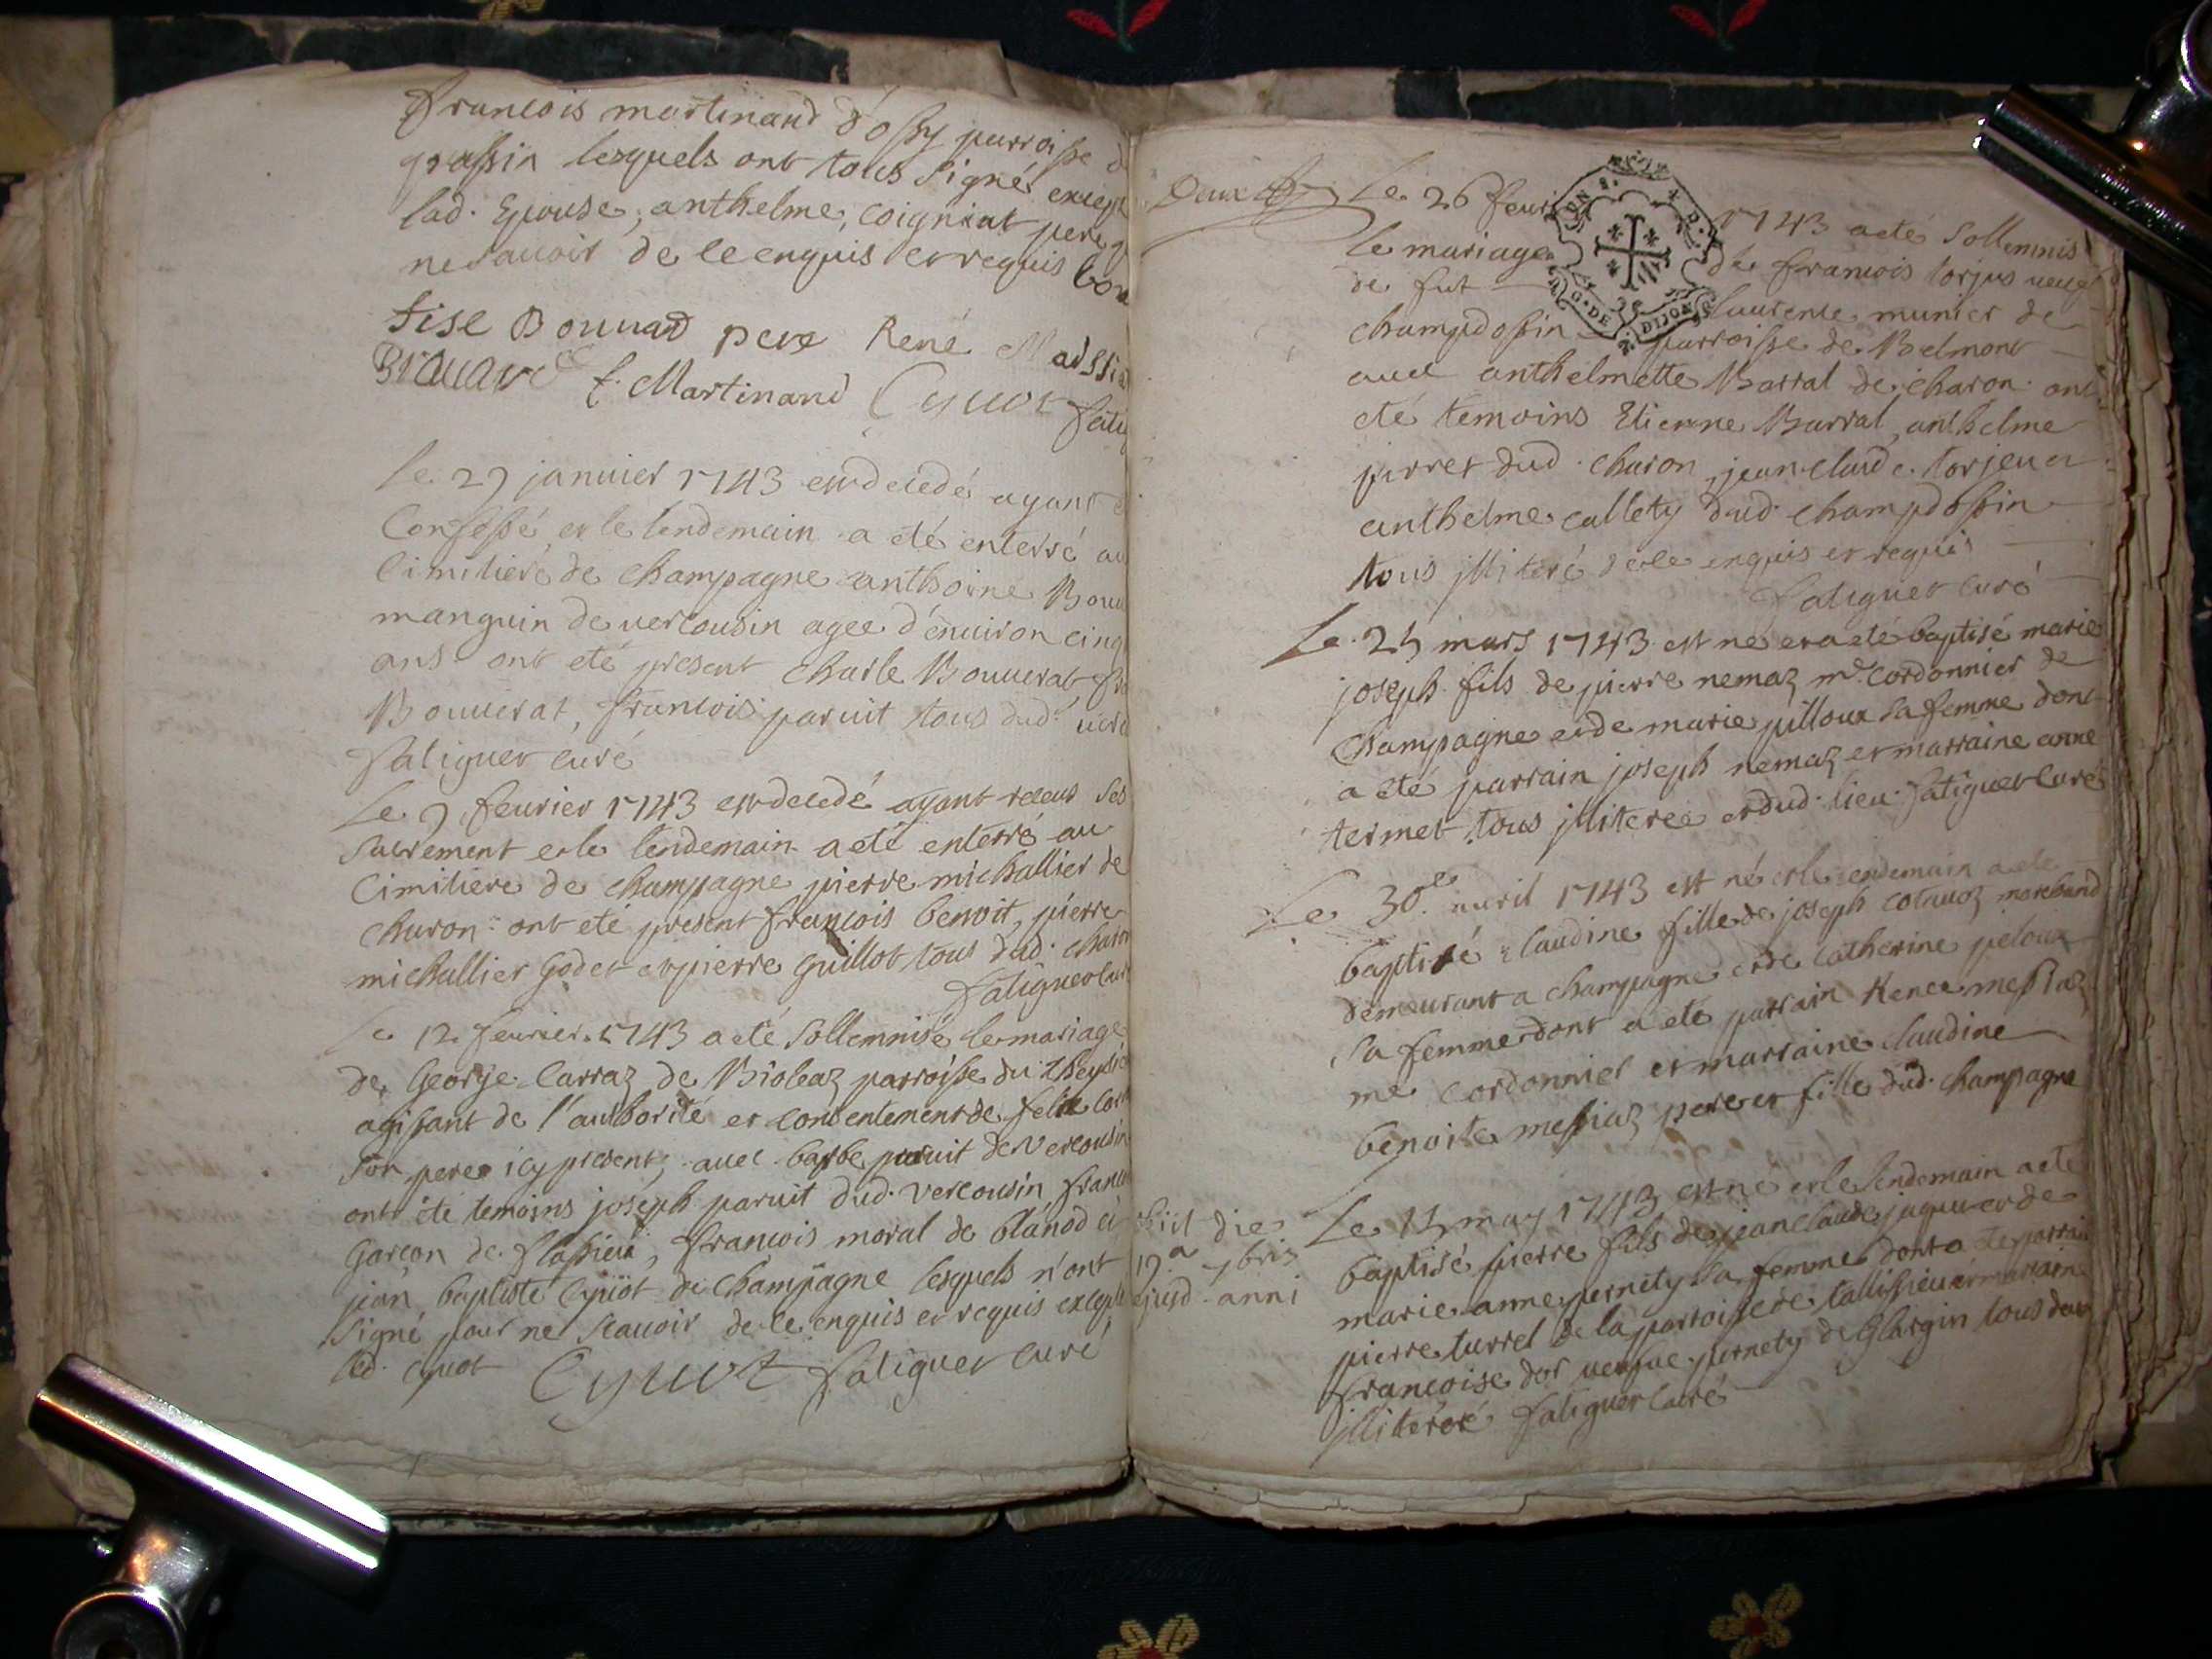 francois martinand d'ossy parroisse d
grassin lesquels ont tous signé except
lad. Epouse, anthelme, coigniat pere p
ne sauoir de ce enquis et requis
tise Bouuard pere René Massia
Brauard f. Martinand Cyuot
Le 29 januier 1743 est decedé ayant
Confessé et le lendemain a eté enterré au
Cimitiere de champagne anthoine Bouu
manguin de uercousin agee d'enuiron cinq
ans ont eté present charle Bouuerat, fr
Bouuerat, francois paruit tous dud. uerc
fatiguet curé
Le 9 feurier 1743 est decedé ayant receus ses
sacrement et le lendemain a eté enterré au
Cimitiere de champagne pierre michallier de
charon ont ete present francois benoit, pierre
michallier Godet et pierre guillot tous dud. charon
fatiguet curé
Le 12 feurier 1743 a eté sollemnisé le mariage
de George Carraz de Bioleaz parroisse du
agissant de l'authorité et consentement de felix
son pere icy present, auec barbe paruit de Vercousin
ont ete temoins joseph paruit dud. vercousin, franc
Garcon de flassieu, francois moral de blanod et
jean baptiste Cyuot de Champagne lesquels n'ont
signé pour ne scauoir de ce enquis et requis except
led. cyuot Cyuot fatiguet curé
Deux
Le 26 feuri 1743 a eté sollemnis
le mariage de francois torjus ueuf
de fut laurence munier de
champdossin parroisse de Belmont
auec anthelmette Barral de charon ont
eté temoins Etienne Barral, anthelme
pirret dud. charon, jean claude torjeu et
anthelme callety dud. champdossin
tous jlliteré de ce enquis et requis
fatiguet curé
DE DIJON
Le 25 mars 1743 est né et a eté baptisé marie
joseph fils de pierre nemaz me. cordonnier de
Champagne et de marie pilloux sa femme dont
a eté parrain joseph nemaz et marraine anne
termet tous jlliteree et dud. lieu. fatiguet curé
Le 30e. auril 1743 est né et le lendemain a ete
baptisé claudine fille de joseph cotauoz marchand
demeurant a champagne et de catherine peloux
sa femme dont a eté parrain Renee messiaz
me cordonnier et marraine claudine
benoite messiaz pere et fille dud. champagne
obiit die
19a 7bris
ejusd. anni
Le 15 may 1743 est né et le lendemain a eté
baptisé pierre fils de jean claude jaquet et de
marie anne pernety sa femme dont a ete parrain
pierre turrel de la parroisse de tallissieu et marraine
francoise dor ueufue pernety de Glargin tous deux
jlliteré fatiguet curé